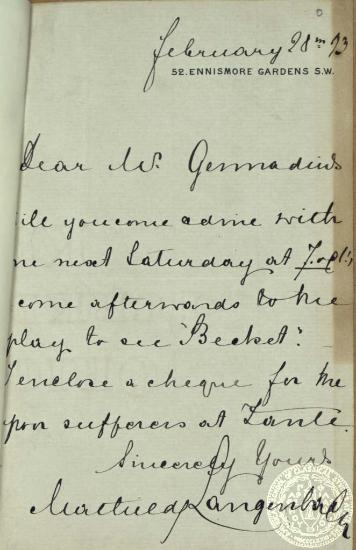 February 28th 93
52. ENNISMORE GARDENS S.W.
Dear Mr. Gennadius
ill you come & dine with
me next Saturday at 7. o'cl &
come afterwards to the
play to see "Becket".
I enclose a cheque for the
poor sufferers at Zante.
Sincerely Yours
Langenbach